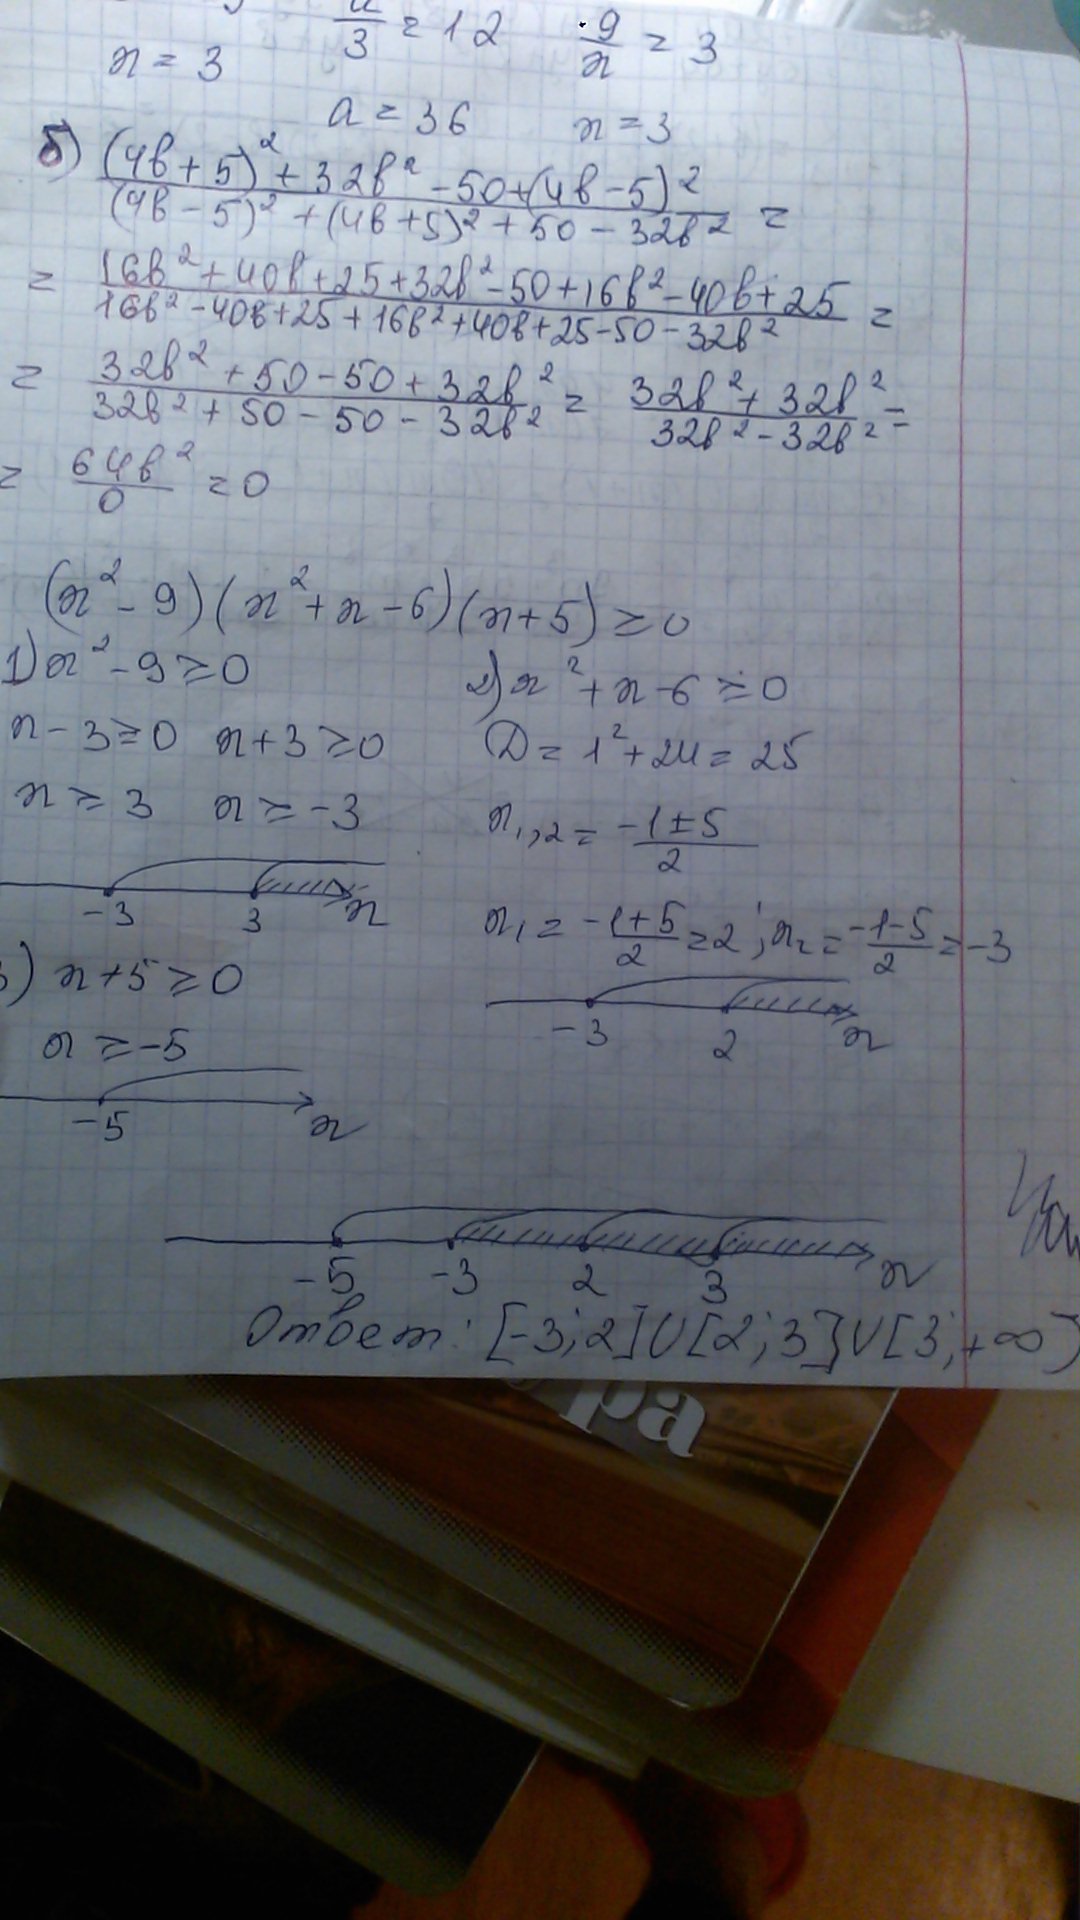 x = 3
a/3 = 12
9/x = 3
a = 36
x = 3
б) ((4b+5)² + 32b² - 50 + (4b-5)²)/((4b-5)² + (4b+5)² + 50 - 32b²) =
= (16b² + 40b + 25 + 32b² - 50 + 16b² - 40b + 25)/(16b² - 40b + 25 + 16b² + 40b + 25 - 50 - 32b²) =
= (32b² + 50 - 50 + 32b²)/(32b² + 50 - 50 - 32b²) = (32b² + 32b²)/(32b² - 32b²) =
= 64b²/0 = 0
(x² - 9)(x² + x - 6)(x + 5) ≥ 0
1) x² - 9 ≥ 0
x - 3 ≥ 0 x + 3 ≥ 0
x ≥ 3 x ≥ -3
-3 3 x
2) x² + x - 6 ≥ 0
D = 1² + 24 = 25
x₁,₂ = (-1 ± 5)/2
x₁ = (-1+5)/2 = 2; x₂ = (-1-5)/2 = -3
-3 2 x
3) x + 5 ≥ 0
x ≥ -5
-5 x
-5 -3 2 3 x
Ответ: [-3; 2] U [2; 3] U [3; +∞)
ра